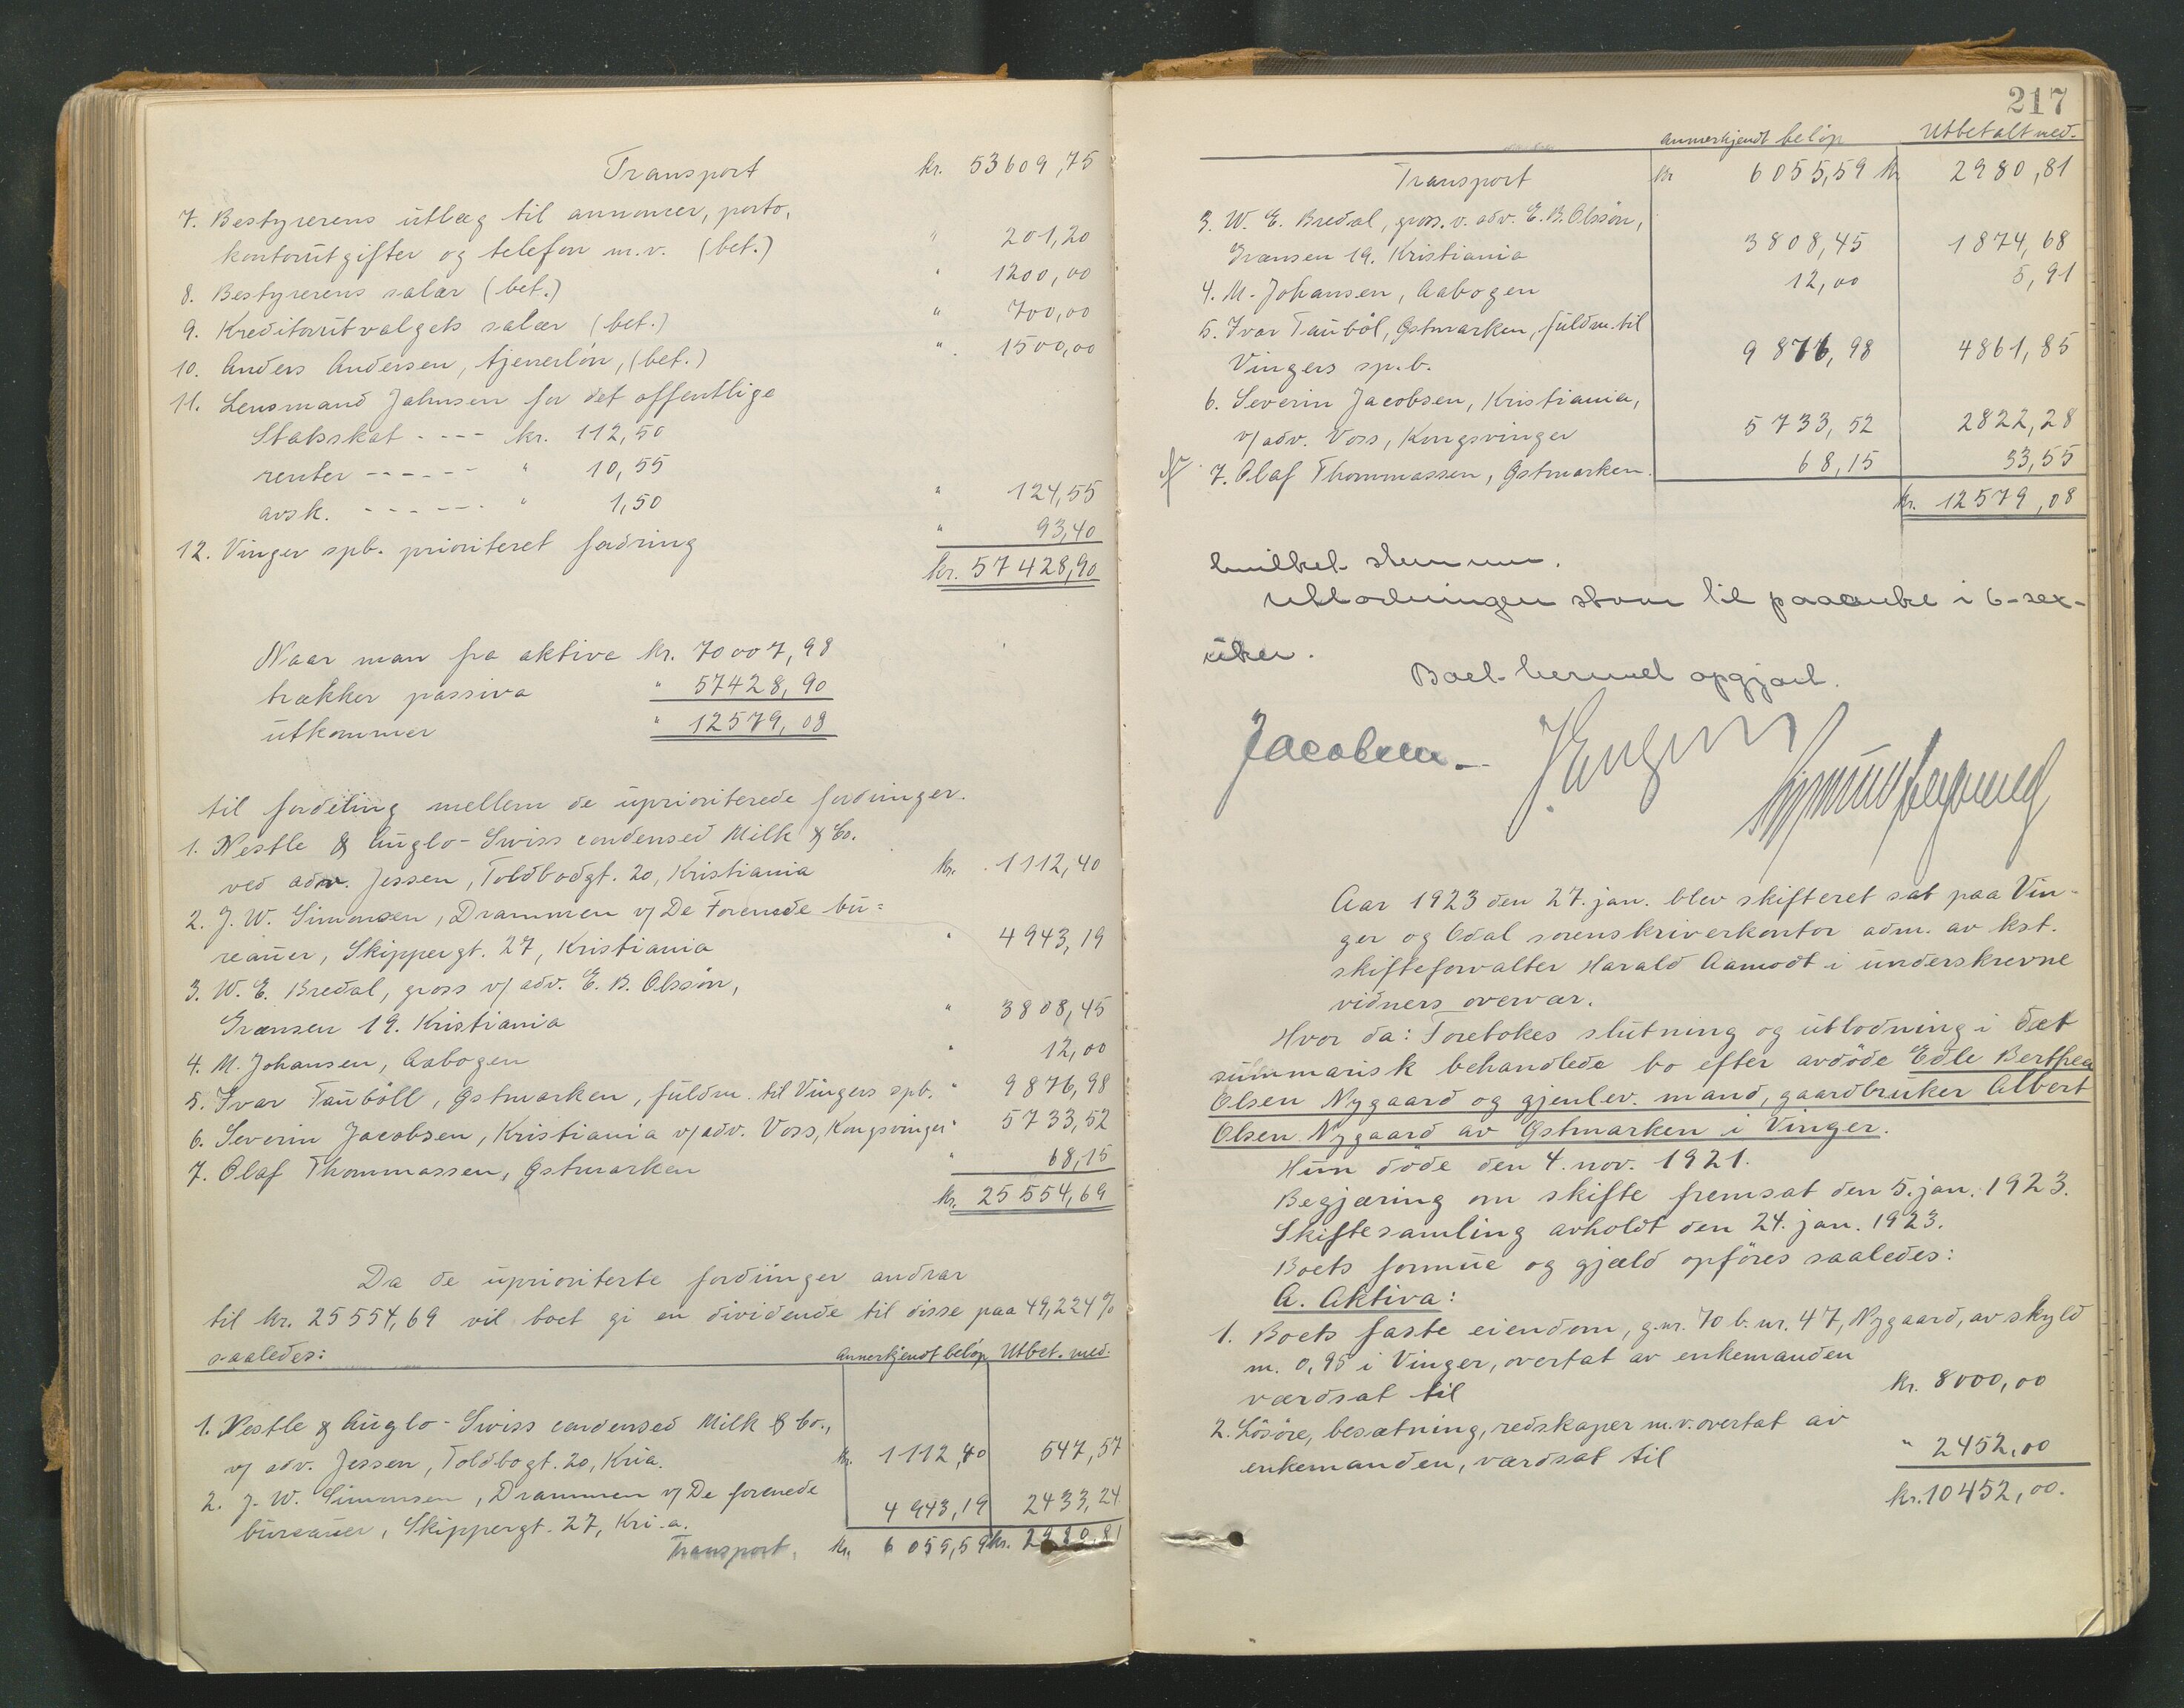 Transport kr. 53609,75
7. Bestyrerens utlæg til annoncer, porto,
kontorutgifter og telefon m.v. (bet.) " 201,20
8. Bestyrerens salær (bet.) " 1200,00
9. Kreditorutvalgets salær (bet.) " 700,00
10. Anders Andersen, tjenerlön, (bet.) " 1500,00
11. Lensmand Jahnsen for det offentlige
Statsskat - - - - kr. 112,50
renter - - - - - - " 10,55
avsk. - - - - - - " 1,50 " 124,55
12. Vinger spb. prioriteret fordring " 93,40
kr. 57428,90
Naar man fra aktiva kr. 70007,98
trækker passiva " 57428,90
utkommer " 12579,08
til fordeling mellem de uprioriterede fordringer.
1. Nestle & Anglo-Swiss condensed Milk & Co.
ved adv. Jessen, Toldbodgt. 20, Kristiania kr. 1112,40
2. J. W. Simonsen, Drammen v/ De Forenede bu=
reauer, Skippergt. 27, Kristiania " 4943,19
3. W. E. Bredal, gross v/ adv. E. B. Olssön,
Grænsen 19. Kristiania " 3808,45
4. M. Johansen, Aabogen " 12,00
5. Ivar Tauböll, Østmarken, fuldm. til Vingers spb. " 9876,98
6. Severin Jacobsen, Kristiania v/ adv. Voss, Kongsvinger " 5733,52
7. Olaf Thommassen, Østmarken " 68,15
kr. 25554,69
Da de uprioriterte fordringer andrar
til kr. 25554,69 vil boet gi en dividende til disse paa 49,224%
saaledes: Annerkjendt belöp Utbet. med.
1. Nestle & Anglo-Swiss condensed Milk & Co.,
v/ adv. Jessen, Toldbogt. 20, Kria. kr. 1112,40 547,57
2. J. W. Simonsen, Drammen v/ De forenede
bureauer, Skippergt. 27, Kri.a. 4943,19 2433,24
Transport. kr. 6055,59 kr. 2980,81
217
Annerkjendt belöp Utbetalt med.
Transport kr 6055,59 kr 2980,81
3. W. E. Bredal, gross. v. adv. E. B. Olssön,
Grænsen 19. Kristiania 3808,45 1874,68
4. M. Johansen, Aabogen 12,00 5,91
5. Ivar Tauböl, Østmarken, fuldm. til
Vingers sp.b. 9876,98 4861,85
6. Severin Jacobsen, Kristiania,
v/ adv. Voss, Kongsvinger 5733,52 2822,28
7. Olaf Thommassen, Østmarken. 68,15 33,55
kr. 12579,08
hvilket stemmer.
Utlodningen staar til paaanke i 6-sex-
uker.
Boet hermed opgjort.
Jacobsen.
Aar 1923 den 27. jan. blev skifteret sat paa Vin-
ger og Odal sorenskriverkontor adm. av kst.
skifteforvalter Harald Aamodt i underskrevne
vidners overvær.
Hvor da: Foretokes slutning og utlodning i det
summarisk behandlede bo efter avdöde Edle Berthea
Olsen Nygaard og gjenlev. mand, gaardbruker Albert
Olsen Nygaard av Østmarken i Vinger.
Hun döde den 4. nov. 1921.
Begjæring om skifte fremsat den 5. jan. 1923.
Skiftesamling avholdt den 24. jan. 1923.
Boets formue og gjæld opföres saaledes:
A. Aktiva:
1. Boets faste eiendom, g.nr. 70 b.nr. 47, Nygaard, av skyld
m. 0,95 i Vinger, overtat av enkemanden
værdsat til kr. 8000,00
2. Lösöre, besætning, redskaper m.v. overtat av
enkemanden, værdsat til " 2452,00
kr. 10452,00.